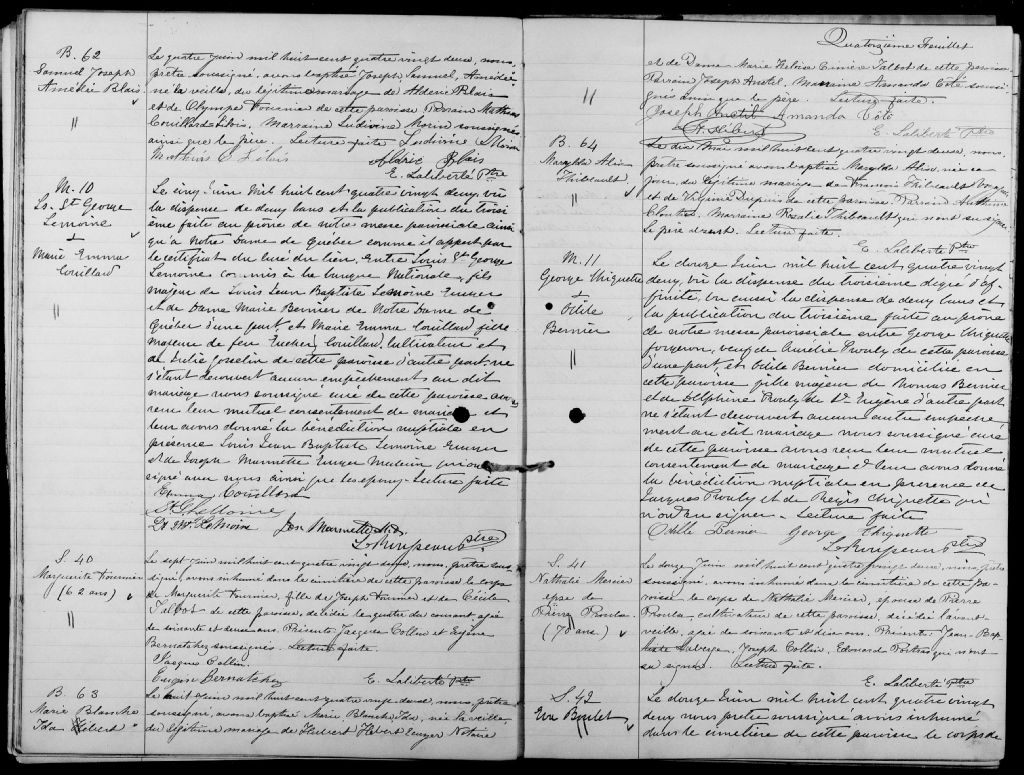 B. 62
Samuel Joseph
Amédée Blais
"
Le quatre juin mil huit cent quatre vingt deux, nous,
prêtre soussigné, avons baptisé Joseph, Samuel, Amédée
né la veille, du légitime mariage de Alderic Blais
et de Olympe Fournier de cette paroisse Parrain Mathias
Couillard Lilois, Marraine Ludivine Morin soussignés
ainsi que le père. Lecture faite Ludivine Morin
Mathias C Lilois Alderic Blais
E. Laliberté Ptre
M. 10
Ls. St George
Lemoine
+
Marie Emma
Couillard
"
Le cinq Juin Mil huit cent quatre vingt deux vu
la dispense de deux bans et la publication du troisi
ème faite au prône de notre messe paroissiale ainsi
qu'à Notre Dame de Québec comme il appert par
le certificat du curé du lieu, Entre Louis St George
Lemoine commis à la banque Nationale, fils
majeur de Louis Jean Baptiste Lemoine Ecuyer
et de Dame Marie Bernier de Notre Dame de
Québec d'une part et Marie Emma Couillard fille
majeure de feu Eucher Couillard, Cultivateur et
de Julie Joselin de cette paroisse d'autre part ne
s'étant découvert aucun empêchement au dit
mariage nous soussigné curé de cette paroisse avons
reçu leur mutuel consentement de mariage et
leur avons donné la bénédiction nuptiale en
présence Louis Jean Baptiste Lemoine Ecuyer
et de Joseph Marmette Ecuyer Médecin qui ont
signé avec nous ainsi que les époux. Lecture faite
Emma Couillard
St G LeMoine
Jos Marmette M.D.
L Rousseau ptre
S. 40
Marguerite Fournier
(62 ans)
"
Le sept juin mil huit cent quatre vingt deux, nous, prêtre sous
signé, avons inhumé dans le cimetière de cette paroisse le corps
de Marguerite Fournier, fille de Joseph Fournier et de Cécile
Talbot de cette paroisse, décédée le quatre du courant, agée
de soixante et deux ans. Présents: Jacques Collin et Eugène
Bernatchez soussignés. Lecture faite.
Jacques Collin
Eugène Bernatchez E. Laliberté Ptre
B. 63
Marie Blanche
Ida Hébert
Le huit Juin mil huit cent quatre vingt deux, nous, prêtre
soussigné, avons baptisé Marie Blanche Ida, née la veille,
du légitime mariage de Hubert Hébert Ecuyer Notaire
Quatorzième Feuillet
"
et de Dame Marie Héloise Talbot de cette paroisse
Parrain Joseph Marraine Amanda Côté soussi
gnés ainsi que le père. Lecture faite.
Joseph Amanda Côté
H. Hébert
E. Laliberté Ptre
B. 64
Thibault
"
Le dix Juin mil huit cent quatre vingt deux, nous,
prêtre soussigné avons baptisé née ce
jour, du légitime mariage de François Thibault
et de Virginie Dupuis de cette paroisse Parrain
Cloutier Marraine Rosalie Thibault qui n'ont su signer.
Le père absent. Lecture faite.
E. Laliberté Ptre
M. 11
George Chiquette
+
Odile
Bernier
"
Le douze Juin mil huit cent quatre vingt
deux, vu la dispense du troisième degré d'af
finité, vu aussi la dispense de deux bans et
la publication du troisième faite au prône
de notre messe paroissiale entre George Chiquette
forgeron, veuf de Amélie Proulx de cette paroisse
d'une part, et Odile Bernier domiciliée en
cette paroisse fille majeure de Thomas Bernier
et de Delphine Proulx de St. Eugène d'autre part
ne s'étant découvert aucun autre empêche
ment au dit mariage nous soussigné curé
de cette paroisse avons reçu leur mutuel
consentement de mariage et leur avons donné
la bénédiction nuptiale en présence de
Jacques Proulx et de Régis Chiquette qui
n'ont su signer. Lecture faite
Odille Bernier George Chiquette
L Rousseau ptre
S. 41
Nathalie Mercier
épse de
Pierre Proulx
(70 ans)
Le douze Juin mil huit cent quatre vingt deux, nous, prêtre
soussigné, avons inhumé dans le cimetière de cette pa
roisse le corps de Nathalie Mercier, épouse de Pierre
Proulx cultivateur de cette paroisse, décédée l'avant
veille, agée de soixante et dix ans. Présents: Jean-Bap
tiste Auberge, Joseph Collin, Edouard Potras qui n'ont
su signer. Lecture faite.
E. Laliberté Ptre
S. 42
Eva Boulet
"
Le douze Juin mil huit cent quatre vingt
deux nous prêtre soussigné avons inhumé
dans le cimetière de cette paroisse le corps de